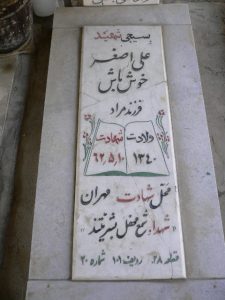 بسیجی شهید
علی اصغر
خوش باش
فرزند مراد
ولادت شهادت
۱۳۴۰ ۶۲,۵,۱۰
محل شهادت مهران
«شهدا شمع محفل بشریتند»
قطعه ۲۸ ردیف ۱۰۱ شماره ۲۰